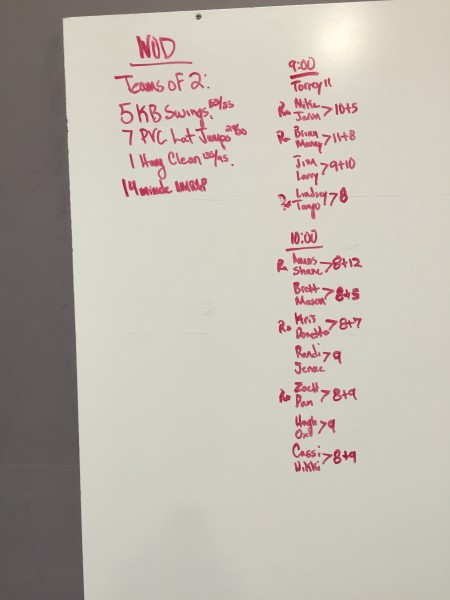 WOD
Teams of 2:
5 KB Swings
7 PVC Lat Jumps
1 Hang Clean 135/95.
14 minute AMRAP
9:00
Torrey 11
Rx Mike
Jason >10+5
Rx Brian
>11+8
Jim
Larry >9+10
Rx Lindsey
>8
10:00
Rx
Shane >8+12
Brett
Mason >8+5
Rx Kris
Donetta >8+7
Randi
Jenae >9
Rx Zach
Pam >8+9
Hugh
>9
Cassi
Nikki >8+9